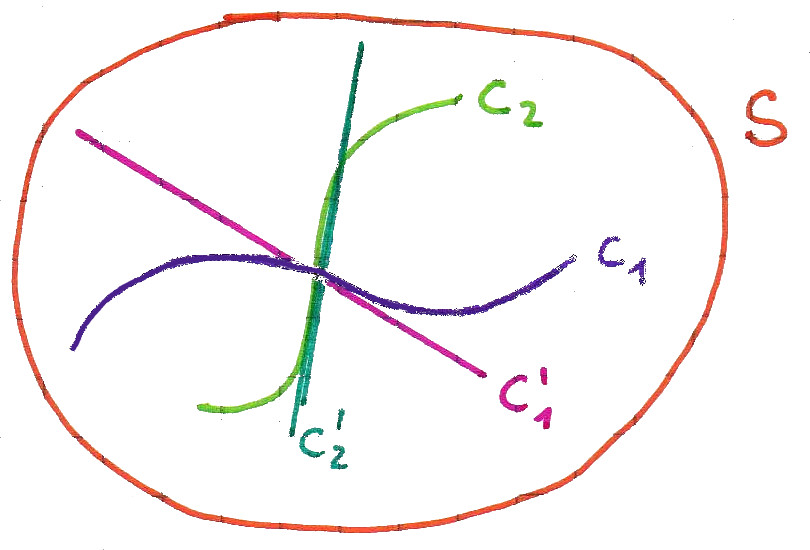 C₂
S
C₁
C'₁
C'₂